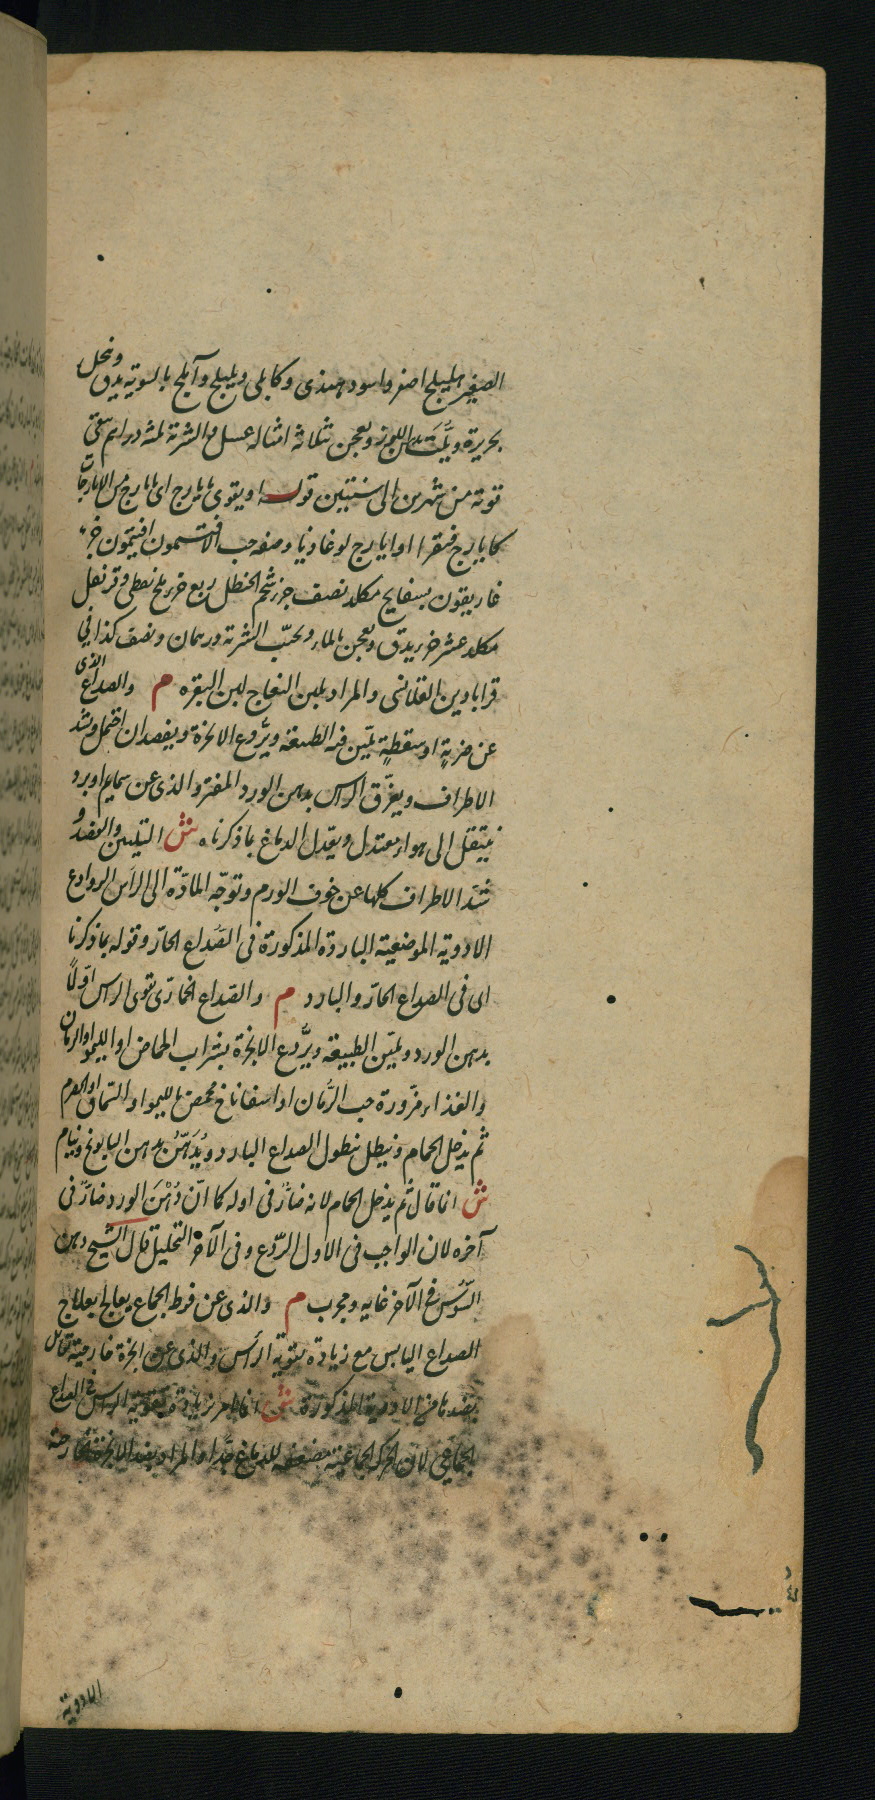 الصغير هليلج اصفر واسود هندى وكابلى وبليلج وآملج بالسويه يدق وينخل
بحريرة ويلت بدهن اللوز ويعجن بثلاثة امثاله عسل والشربة ثلثة دراهم يبقى
قوته من شهرين الى سنتين قوله او يقوى بايارج اى بايارج من الايارجات
كايارج فيقرا او ايارج لوغاديا وصفه حب الافتيمون افتيمون جزء
غاريقون بسفايج مكلد نصف جزء شحم الحنظل ربع جزء ملح نفطى وقرنفل
مكلد عشر جزء يدق ويعجن بالماء ويحبّب الشربة درهمان ونصف كذا فى
قرابادين القلانسى والمراد بلبن النعاج لبن البقره م والصداع الذى
عن ضربة او سقطةٍ تليّن فيه الطبيعة ويروع الابخرة ويفصد ان احتمل ويشد
الاطراف ويعرّق الراس بدهن الورد المفتر والذى عن سمايم او برد
ينتقل الى هواء معتدل ويعدل الدماغ بما ذكرناه ش التليين والفصد و
شدّ الاطراف كلها عن خوف الورم وتوجّه المادّة الى الراس الروادع
الادوية الموضعية الباردة المذكورة فى الصداع الحارّ وقوله بما ذكرنا
اى فى الصداع الحارّ والبارد م والصداع الخمارى تقوى الراس اوّلاً
بدهن الورد وتليّن الطبيعة ويرّدع الابخرة بشراب الحماض او الليمو او الرمان
والغذاء مزّورة حب الرّمان او اسفاناخ محمض بالليمو او السماق او الحصرم
ثم يدخل الحمام وينطل بنطول الصداع البارد ويُدَهّنُ بدهن البابونج وينام
ش انما قال ثم يدخل الحمام لانه ضارٌ فى اوله كما انّ دُهْنَ الورد ضارٌ فى
آخره لان الواجب فى الاول الرّدع وفى الآخر التحليل قال الشيخ دهن
السّوسن فى الآخر غايه ومجرب م والذى عن فرط الجماع يعالج بعلاج
الصداع اليابس مع زيادة تقوية الرأس والذى عن ابخرة خارجية تقابل
بضدها من الادوية المذكورة ش انما امر بزيادة تقوية الراس فى الصداع
الجماعى لان الحركة الجماعية مضعفه للدماغ جدا والمراد بضد الابخرة الخارجة
الادوية